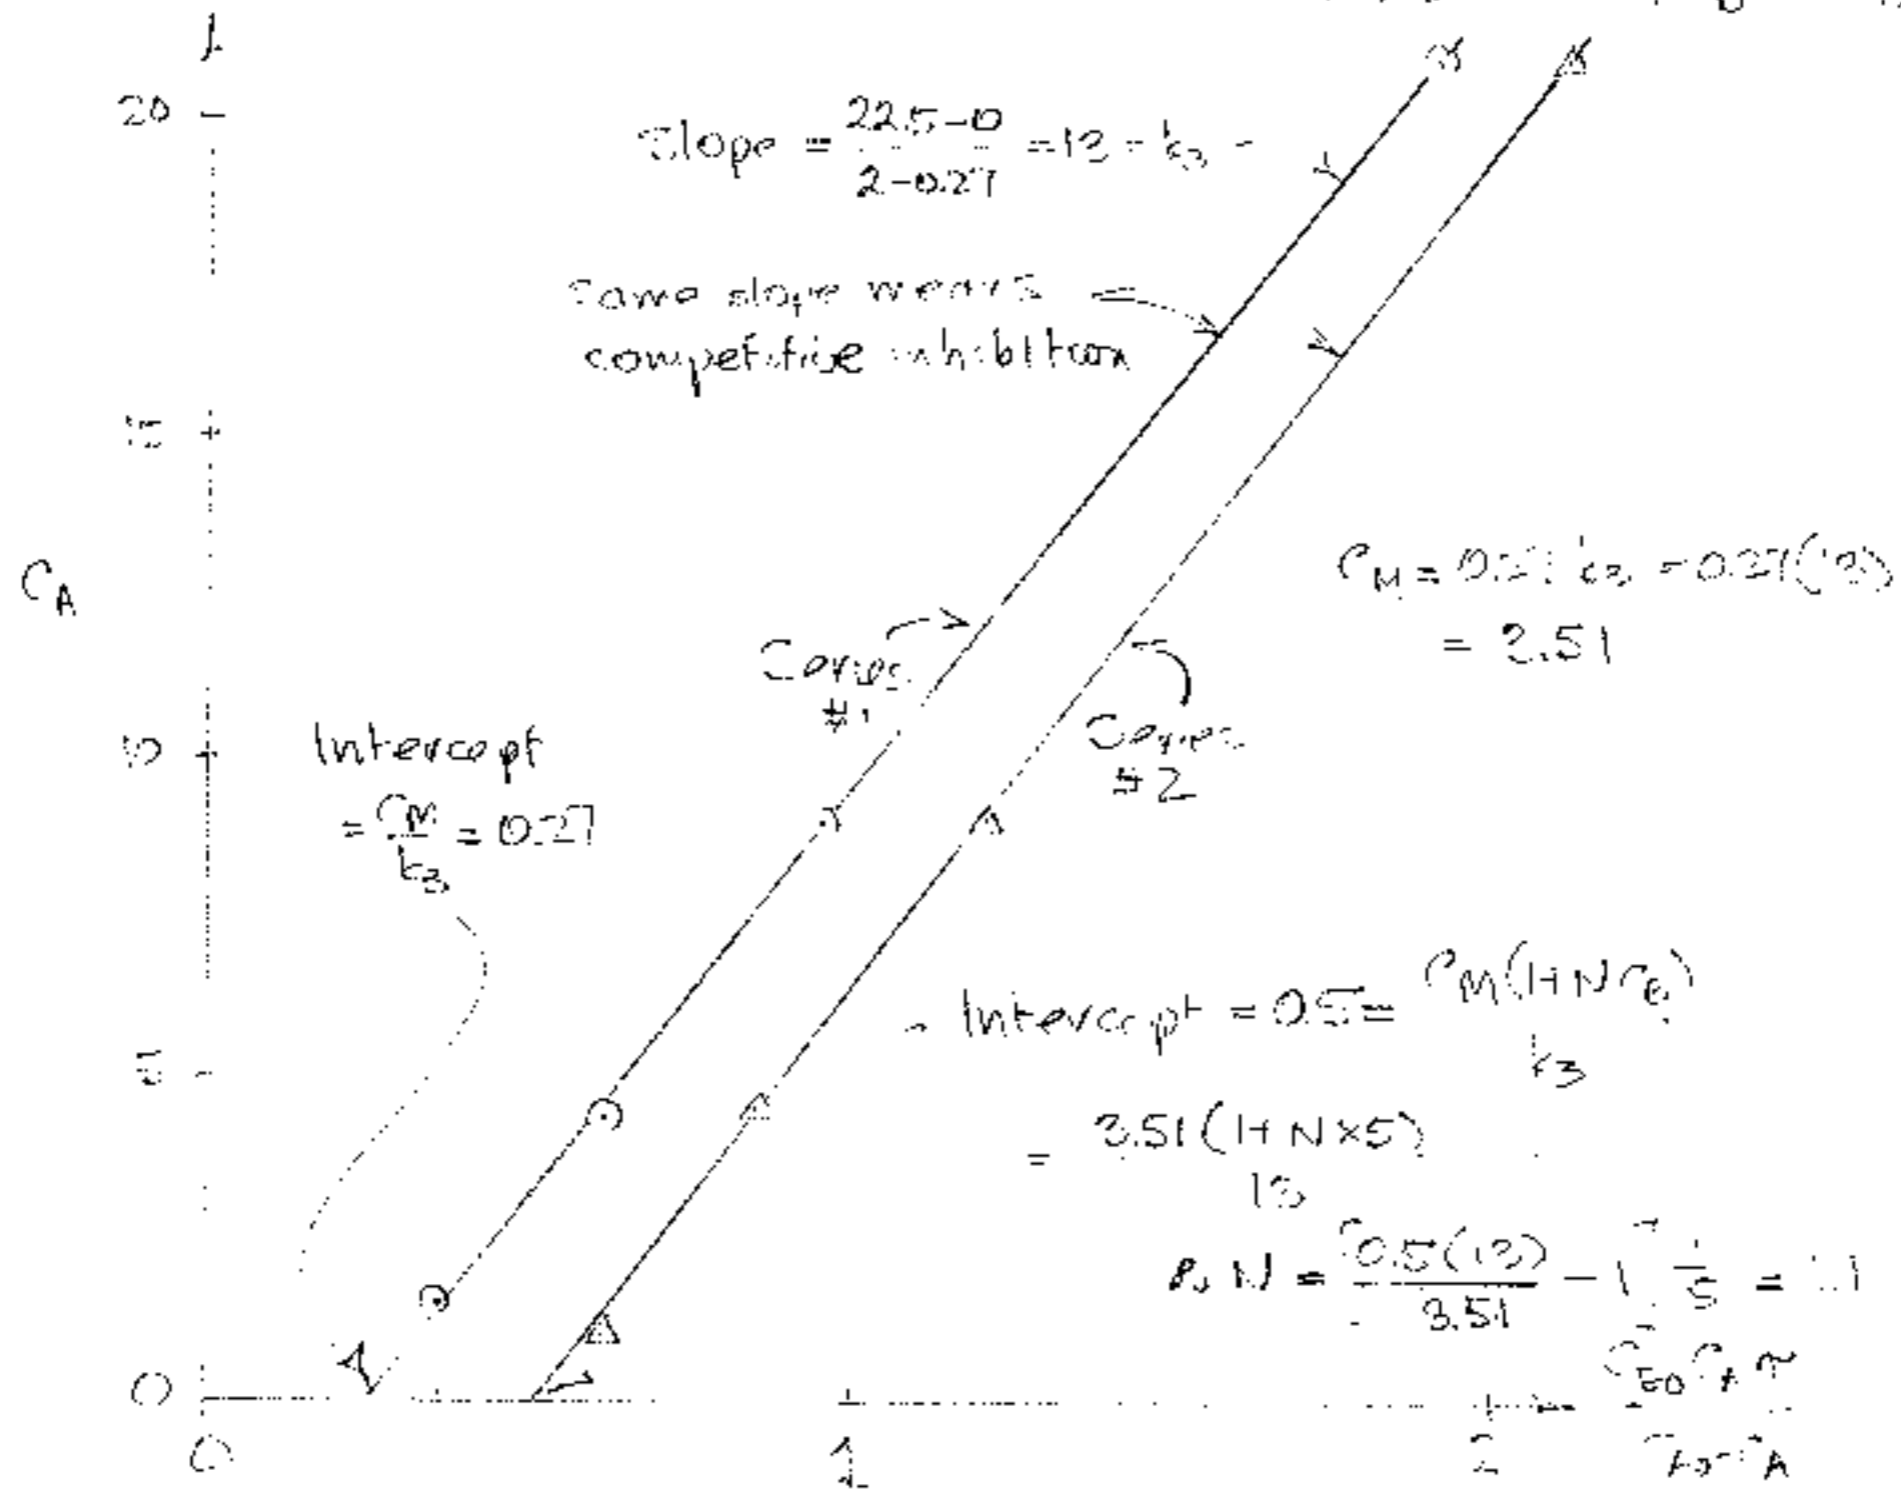 20
Slope = 22.5-0 / 2-0.27 = 13 = k3
Same slope means
competitive inhibition
15
CA
CM = 0.27 k3 = 0.27(13)
= 3.51
Series
#1
Series
#2
10
Intercept
= CM / k3 = 0.27
Intercept = 0.5 = CM(1+NCB) / k3
5
= 3.51(1+N×5) / 13
N = [0.5(13) / 3.51 - 1] 1/5 =
0
CE0 CA τ / CA0-CA
0
1
2